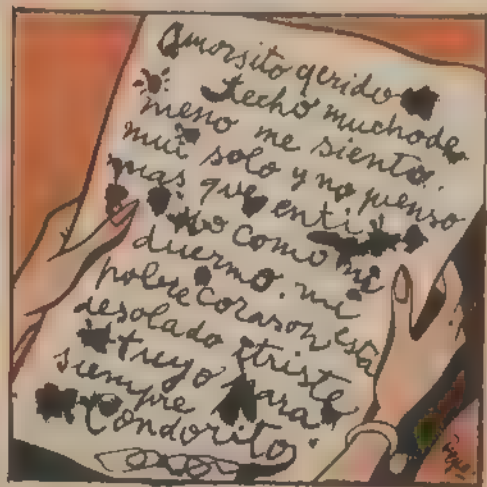 Amorsito qerido
techo muchode
meno me siento.
mui solo y no pienso
mas que enti
No como ni
duermo. mi
pobre corason está
desolado itriste
tuyo para
siempre
Condorito.